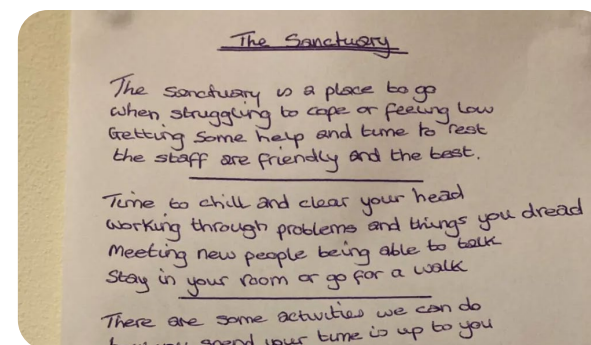 The Sanctuary
The Sanctuary is a place to go
when struggling to cope or feeling low
Getting some help and time to rest
the staff are friendly and the best.
Time to chill and clear your head
working through problems and things you dread
Meeting new people being able to talk
Stay in your room or go for a walk
There are some activities we can do
you spend your time is up to you